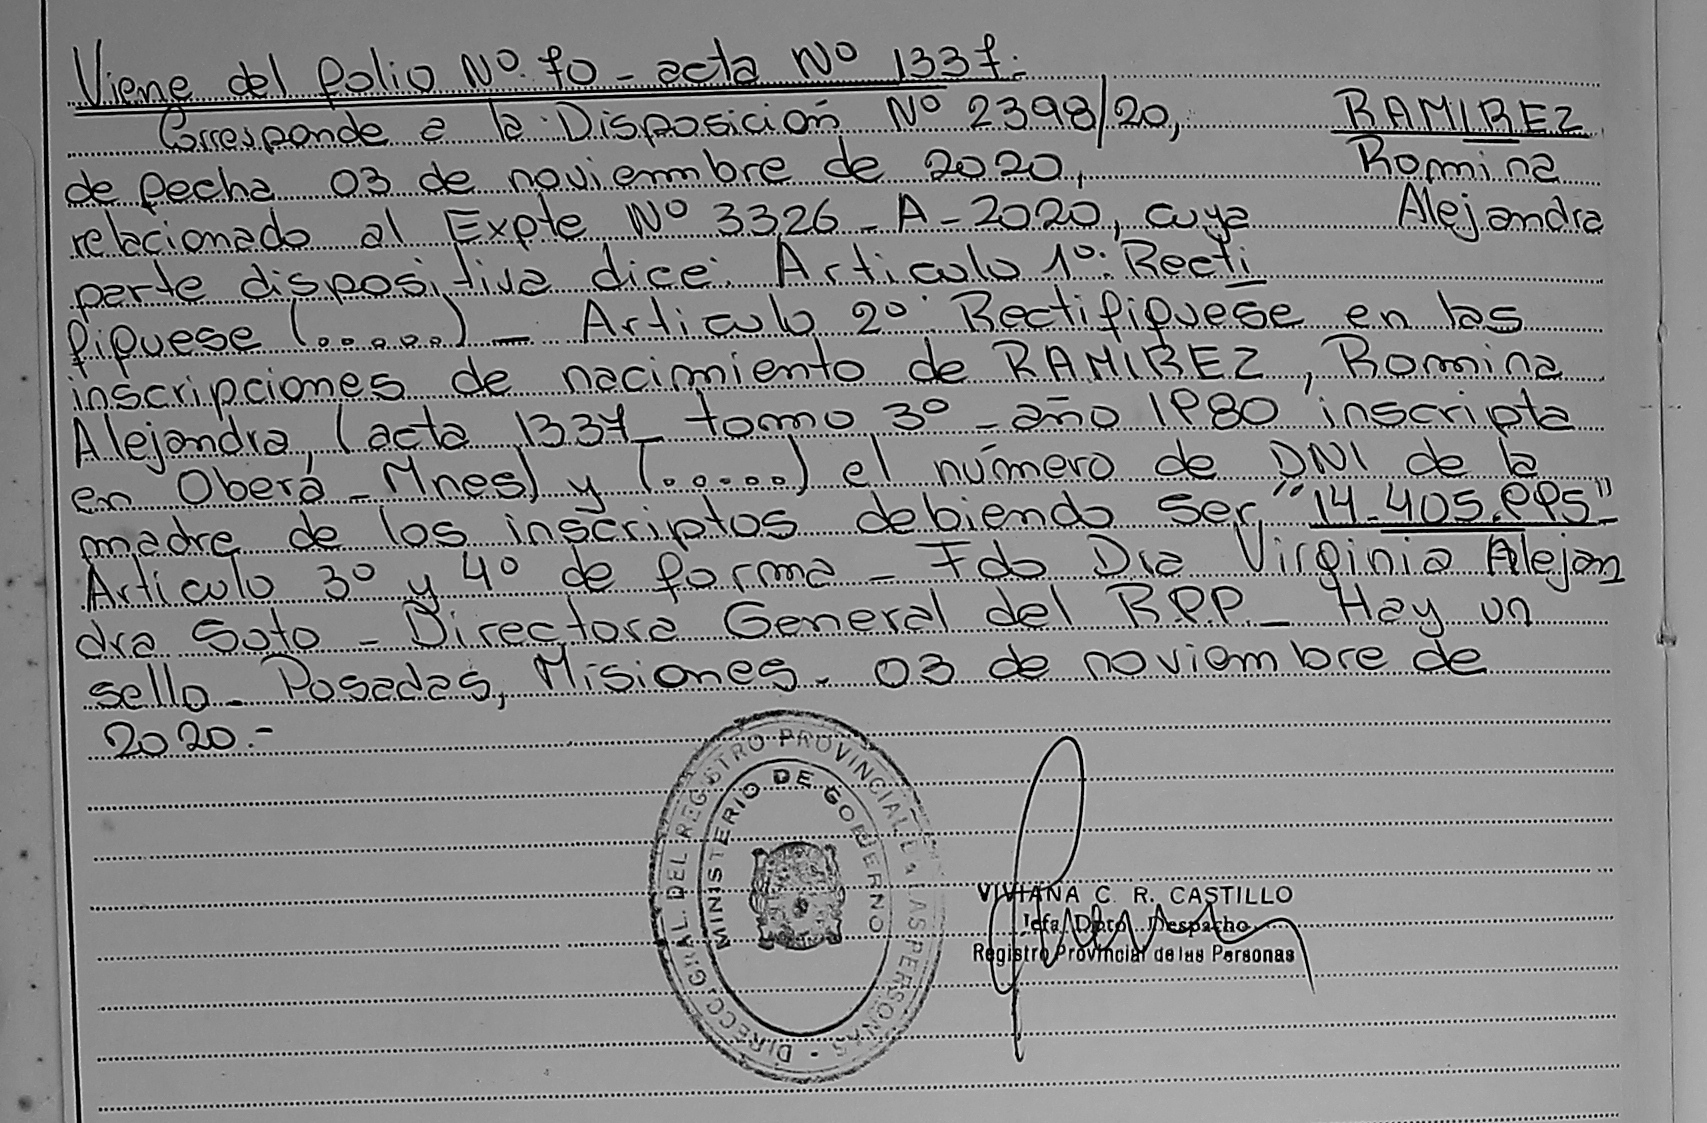 Viene del folio Nº 70 - acta Nº 1337.
Corresponde a la Disposición Nº 2398/20,
RAMIREZ
Romina
Alejandra
de fecha 03 de noviembre de 2020,
relacionado al Expte Nº 3326 - A - 2020, cuya
parte dispositiva dice: Articulo 1º: Recti
fiquese (.....) - Articulo 2º: Rectifiquese en las
inscripciones de nacimiento de RAMIREZ, Romina
Alejandra, (acta 1337 - tomo 3º - año 1980 inscripta
en Oberá - Mnes) y (.....) el número de DNI de la
madre de los inscriptos debiendo ser "14.405.995"
Articulo 3º y 4º de forma - Fdo Dra Virginia Alejan
dra Soto - Directora General del R.P.P. - Hay un
sello - Posadas, Misiones. 03 de noviembre de
2020.-
DIRECC. GRAL. DEL REGISTRO PROVINCIAL DE LAS PERSONAS -
MINISTERIO DE GOBIERNO
VIVIANA C. R. CASTILLO
Jefa Dpto. Despacho
Registro Provincial de las Personas